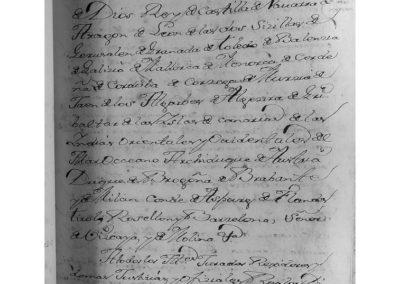 de Dios Rey de Castilla de Navarra de
Aragon de Leon de las dos Sizilias de
Jerusalen de Granada de toledo de Balenzia
de Galizia de Mallorca de Menorca de Cerde
ña de Cordova de Corzega de Murzia de
Jaen de los Algarbes de Algezira de Gi
baltar de las Islas de canarias de las
Indias Orientales y Ocidentales del
Mar Occeano Archiduque de Austria
Duque de Brogoña de Brabante
y de Milan Conde de Aspurg de Flandes
Rosellon y Barzelona, Señor
de Vizcaya, y de Molina &
A todos los Jurados
y demas Justizias y Ofiziales